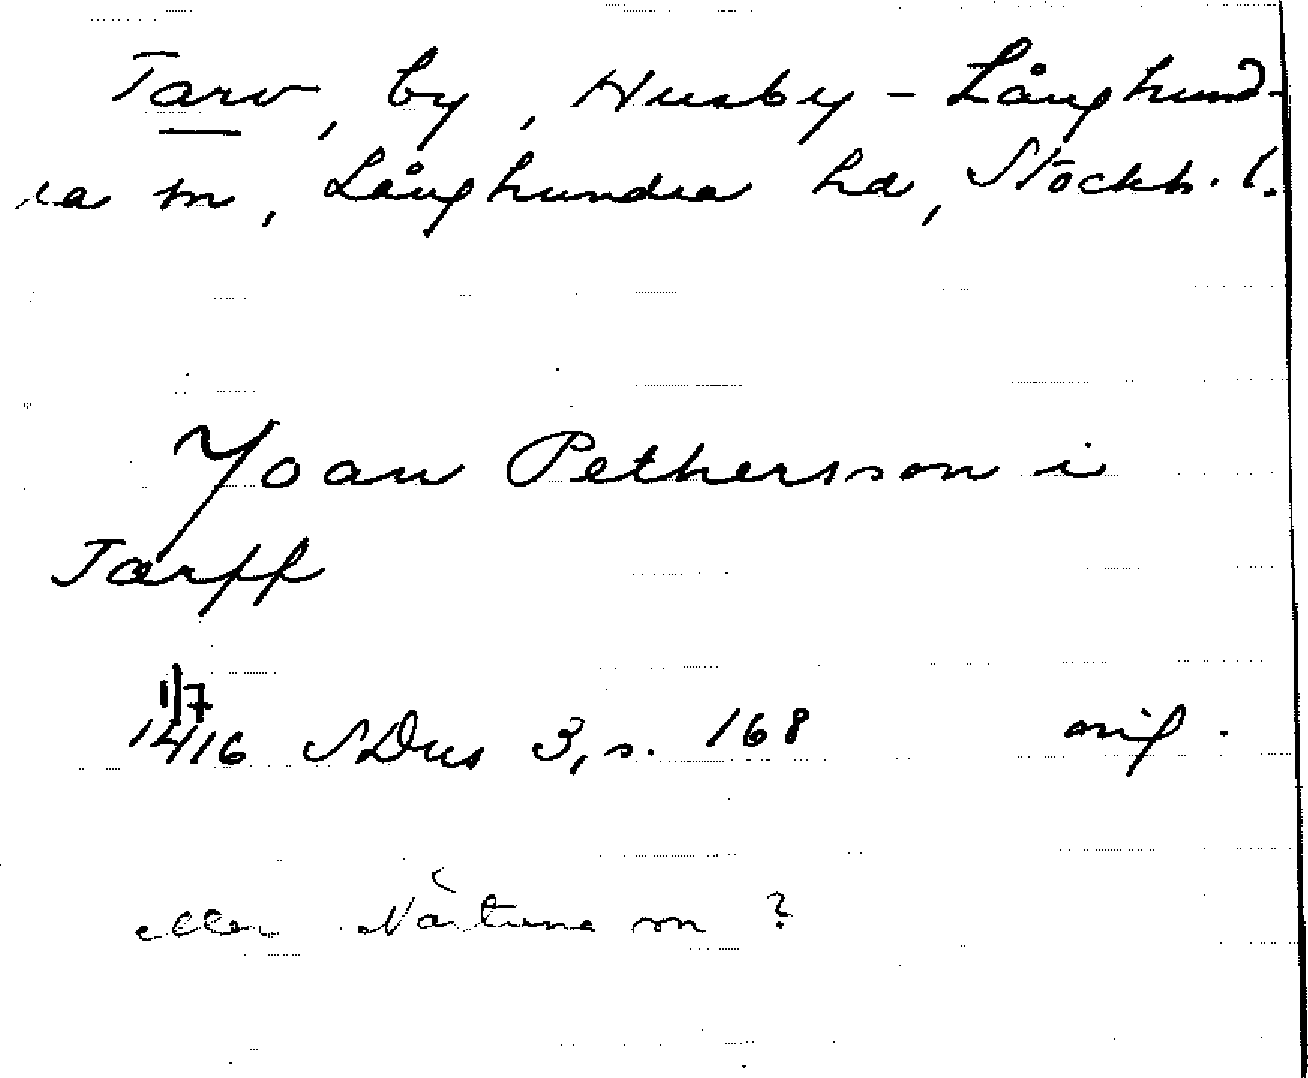 Tarv, by, Husby-Långhund-
ra sn, Långhundra hd, Stockh. l.
Joan Pethersson i
Tarff
1/7
1416 SDns 3, s. 168 orig.
eller Närtuna sn ?